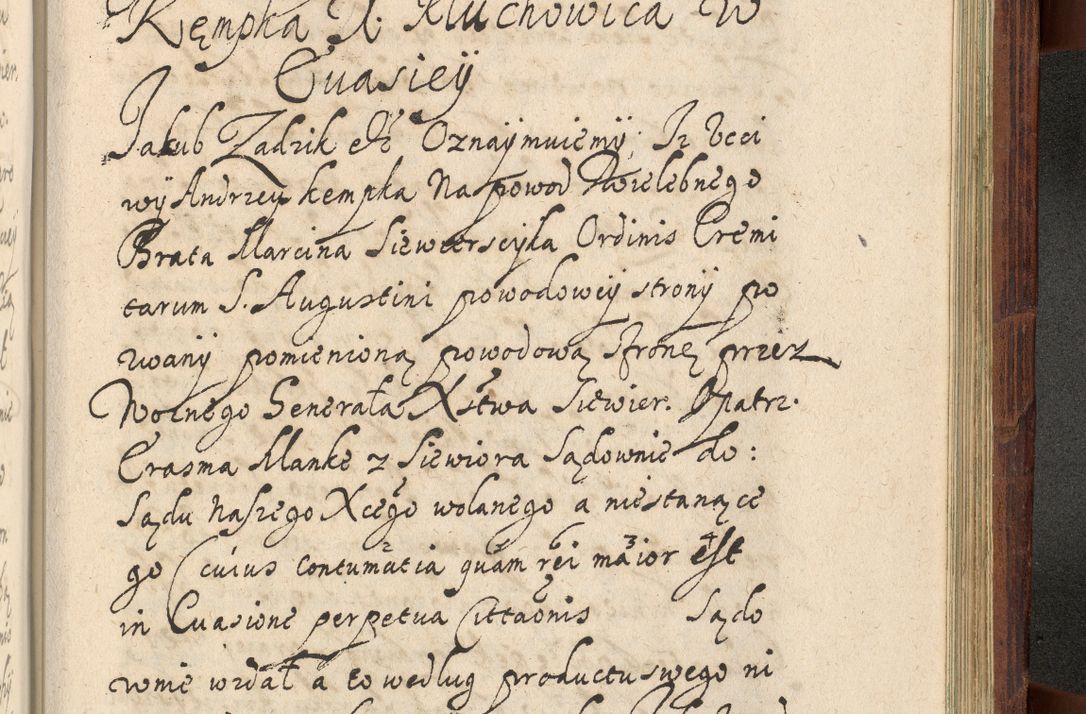 Kempka X. Kluchowica W
Evasiey
Jakub Zadzik etc Oznaymuiemy, Iz Ucci
wy Andrzey kempka Na powod Wielebnego
Brata Marcina Siewierscyka Ordinis Eremi
tarum S. Augustini powodowey strony po
wany pomienioną powodową stronę przez
Woznego Generała Xstwa Siewier. Opatrz.
Erasma Manke z Siewiora Sądownie do:
Sądu naszego Xcego wolanego a niestanące
go (cuius contumatia quam rei maior est
in Evasione perpetua Citt̃aonis Sądo
wnie wzdał a to według productu swego ni